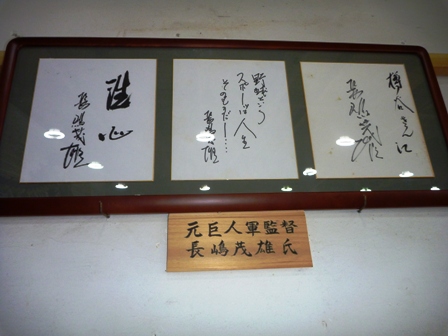 洗心
長嶋茂雄
野球という
スポーツは人生
そのものだ……
長嶋茂雄
さん江
長嶋茂雄
元巨人軍監督
長嶋茂雄氏